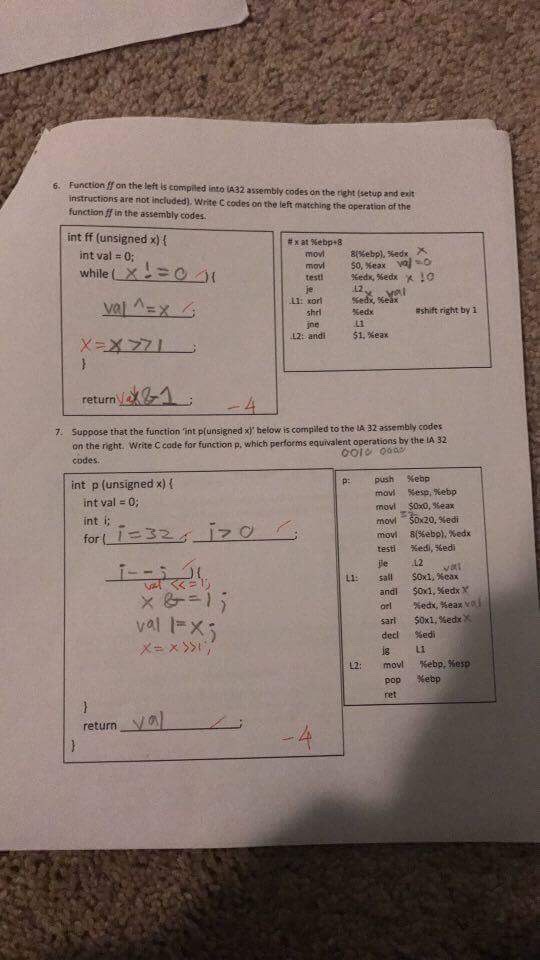 6. Function ff on the left is compiled into IA32 assembly codes on the right (setup and exit
instructions are not included). Write C codes on the left matching the operation of the
function ff in the assembly codes.
int ff (unsigned x) {
int val = 0;
while ( x != 0 ✓ ){
val ^= x ✓ ;
x = x >> 1 ;
}
return val x & 1 ;
-4
# x at %ebp+8
movl 8(%ebp), %edx x
movl $0, %eax val = 0
testl %edx, %edx x !0
je .L2
x val
.L1: xorl %edx, %eax
shrl %edx #shift right by 1
jne .L1
.L2: andl $1, %eax
7. Suppose that the function 'int p(unsigned x)' below is compiled to the IA 32 assembly codes
on the right. Write C code for function p, which performs equivalent operations by the IA 32
codes.
0010 0000
int p (unsigned x) {
int val = 0;
int i;
for ( i = 32 ✓ ; i > 0 ✓ ;
i-- ; ✓ ){
val <<= 1;
x &= 1;
val |= x;
x = x >> 1;
}
return val ✓ ;
}
-4
p: push %ebp
movl %esp, %ebp
movl $0x0, %eax
32
movl $0x20, %edi
movl 8(%ebp), %edx
testl %edi, %edi
jle .L2
val
L1: sall $0x1, %eax
andl $0x1, %edx x
orl %edx, %eax val
sarl $0x1, %edx x
decl %edi
jg L1
L2: movl %ebp, %esp
pop %ebp
ret